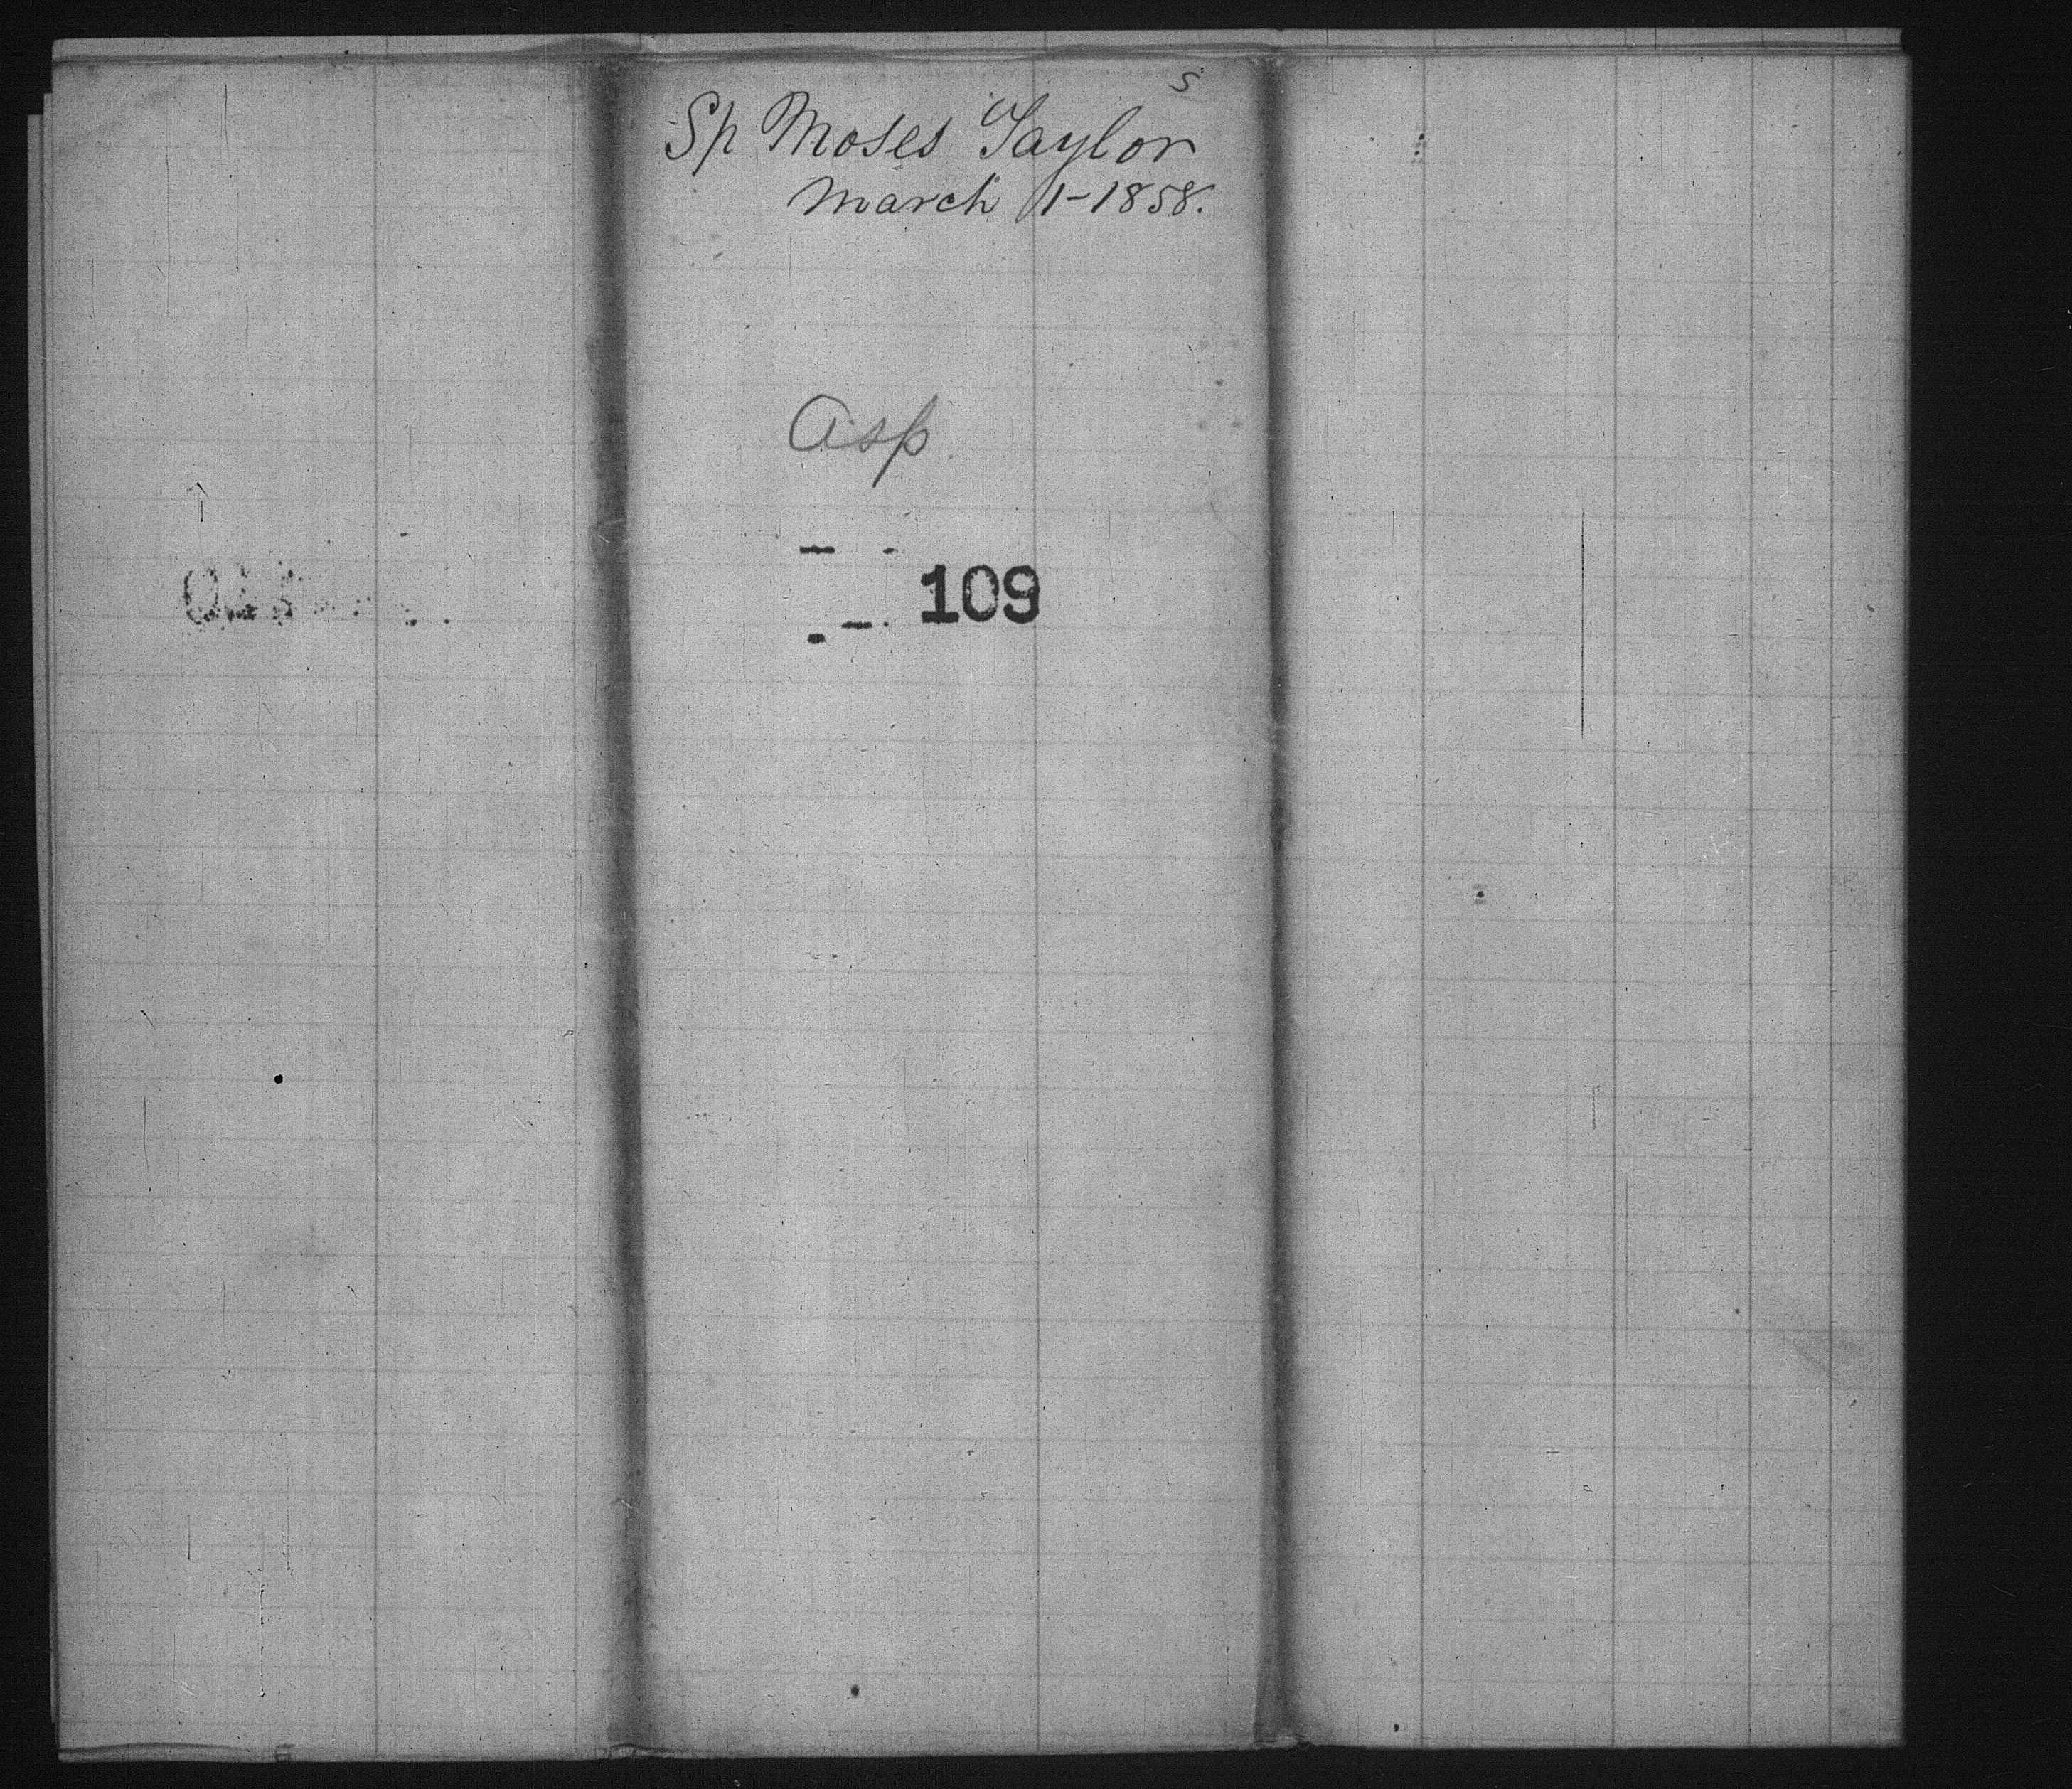 S
Sp Moses Taylor
March 1-1858.
Asp.
109